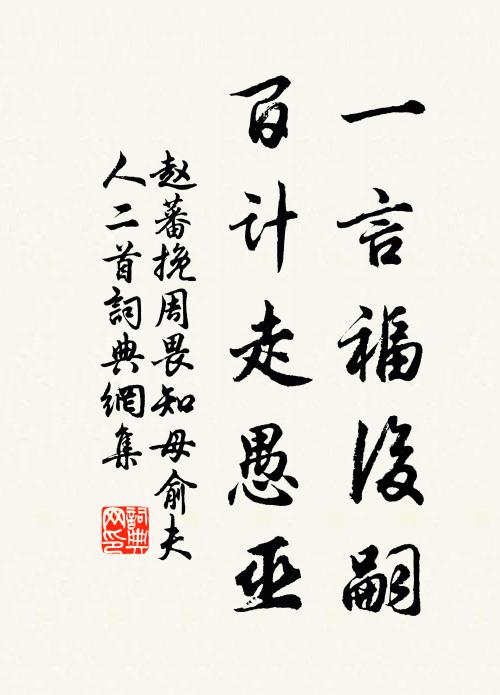 一言福後嗣
百计走愚巫
赵蕃挽周畏知母俞夫
人二首詞典網集
詞典
网印